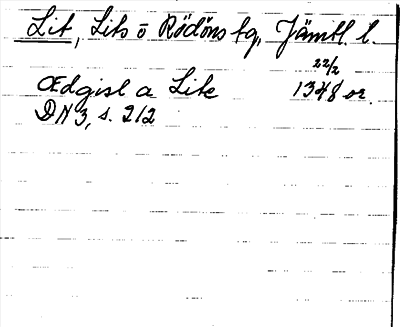 Lit, Lits o Rödöns tg, Jämtl. l.
22/2
Ædgisl a Lite 1348 or.
DN 3, s. 212